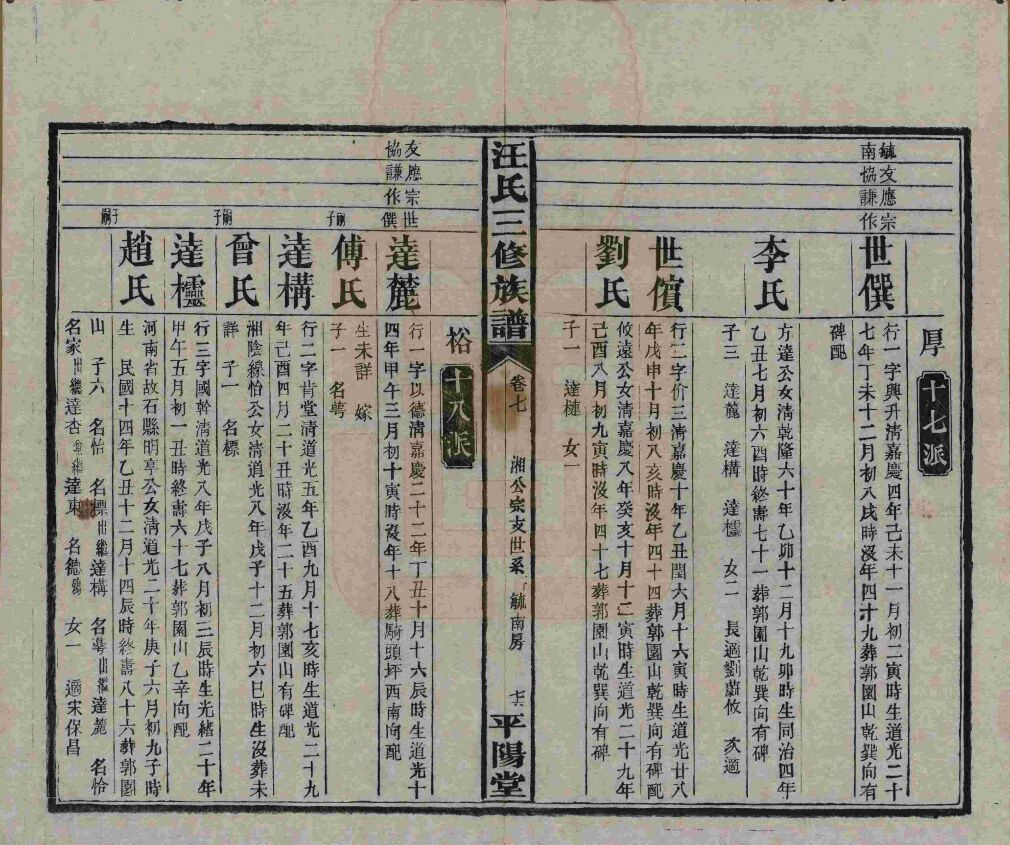 厚
十七派
毓友應宗
南協謙作
世僎
行一字興升清嘉慶四年己未十一月初二寅時生道光二十
七年丁未十二月初八戌時沒年四十九葬郭園山乾巽向有
碑配
李氏
方達公女清乾隆六十年乙卯十二月十九卯時生同治四年
乙丑七月初六酉時終壽七十一葬郭園山乾巽向有碑
子三 達麓 達構 達櫺 女二 長適劉蔚攸 次適
世儥
行二字价三清嘉慶十年乙丑閏六月十六寅時生道光廿八
年戊申十月初八亥時沒年四十四葬郭園山乾巽向有碑配
劉氏
攸遠公女清嘉慶八年癸亥十月十二寅時生道光二十九年
己酉八月初九寅時沒年四十七葬郭園山乾巽向有碑
子一 達槤 女一
汪氏三修族譜
卷七
湘公宗支世系
毓南房
平陽堂
裕
十八派
友應宗世
協謙作僎
達麓
行一字以德清嘉慶二十二年丁丑十月十六辰時生道光十
四年甲午三月初十寅時沒年十八葬騎頭坪西南向配
傅氏
生未詳 嫁
嗣子
子一 名蕚
達構
行二字肯堂清道光五年乙酉九月十七亥時生道光二十九
年己酉四月二十丑時沒年二十五葬郭園山有碑配
曾氏
湘陰線怡公女清道光八年戊子十二月初六巳時生沒葬未
嗣子
詳 子一 名標
達櫺
行三字國幹清道光八年戊子八月初三辰時生光緒二十年
甲午五月初一丑時終壽六十七葬郭園山乙辛向配
趙氏
河南省故石縣明亭公女清道光二十年庚子六月初九子時
生 民國十四年乙丑十二月十四辰時終壽八十六葬郭園
嗣子
山 子六 名怡 名標出繼達構 名蕚出繼達麓 名恰
名家出繼達杏 兼繼達東 名德殤 女一 適宋保昌